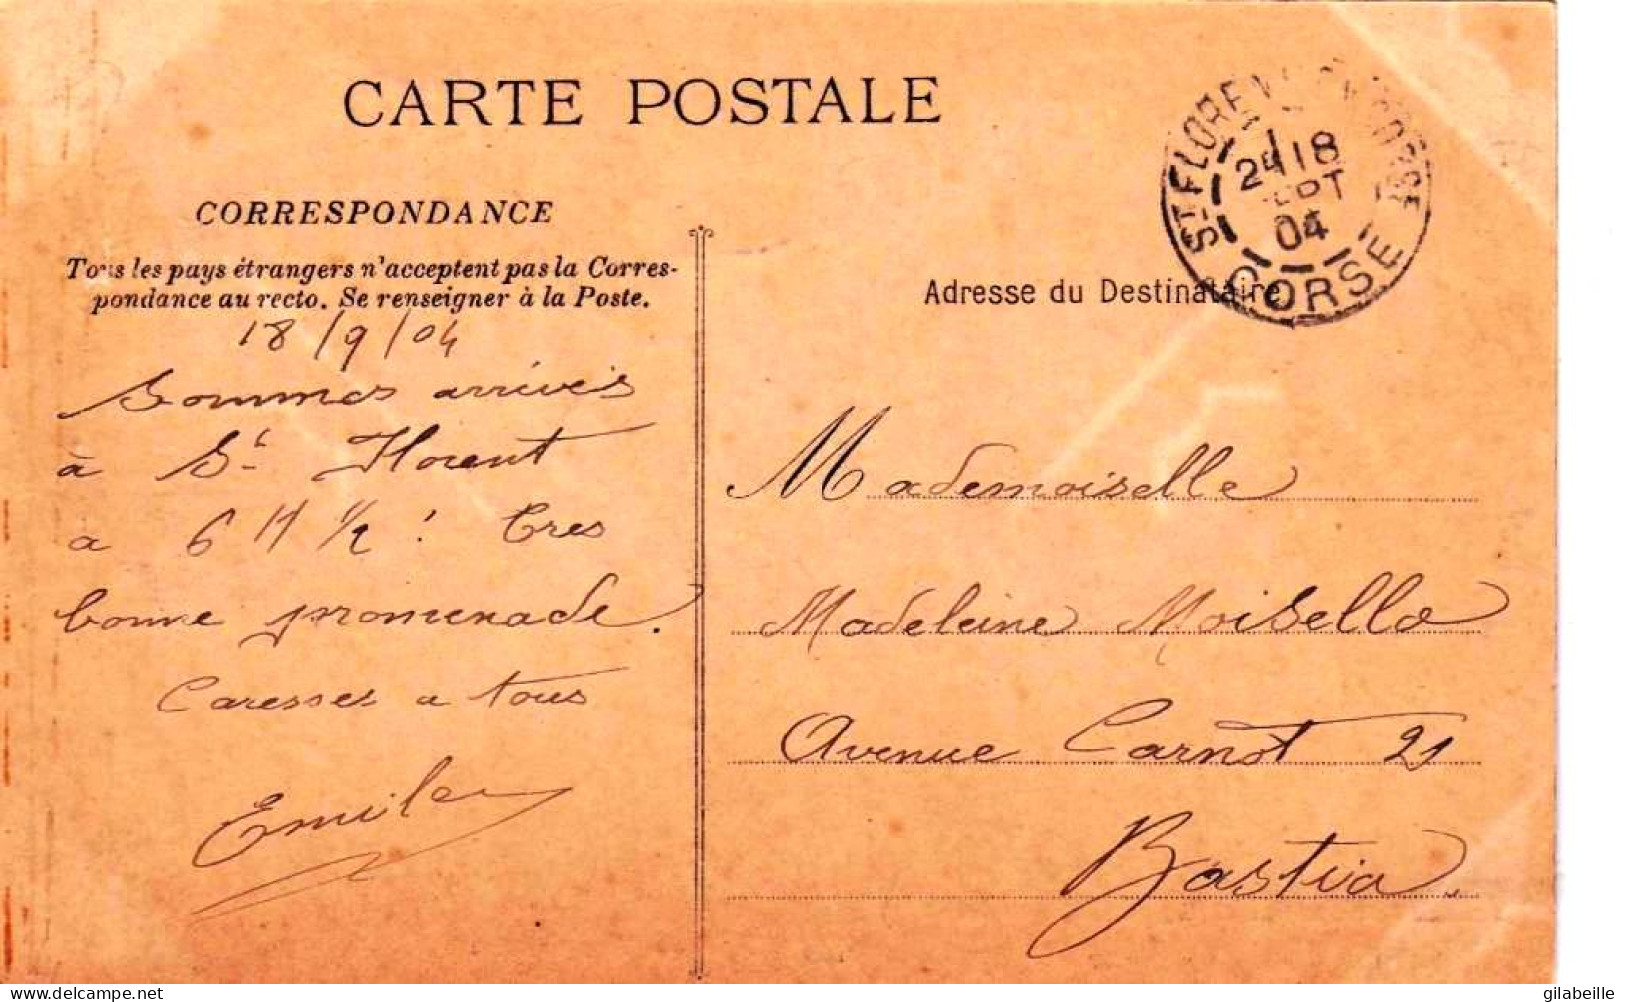 CARTE POSTALE
CORRESPONDANCE
Tous les pays étrangers n'acceptent pas la Corres-
pondance au recto. Se renseigner à la Poste.
18/9/04
Sommes arrivés
à St Florent
a 6 H 1/2 ! Tres
bonne promenade.
Caresses a tous
Emile
ST FLORENT
2E 18
SEPT
04
CORSE
Adresse du Destinataire
Mademoiselle
Madeleine Moisello
Avenue Carnot 21
Bastia
gilabeille